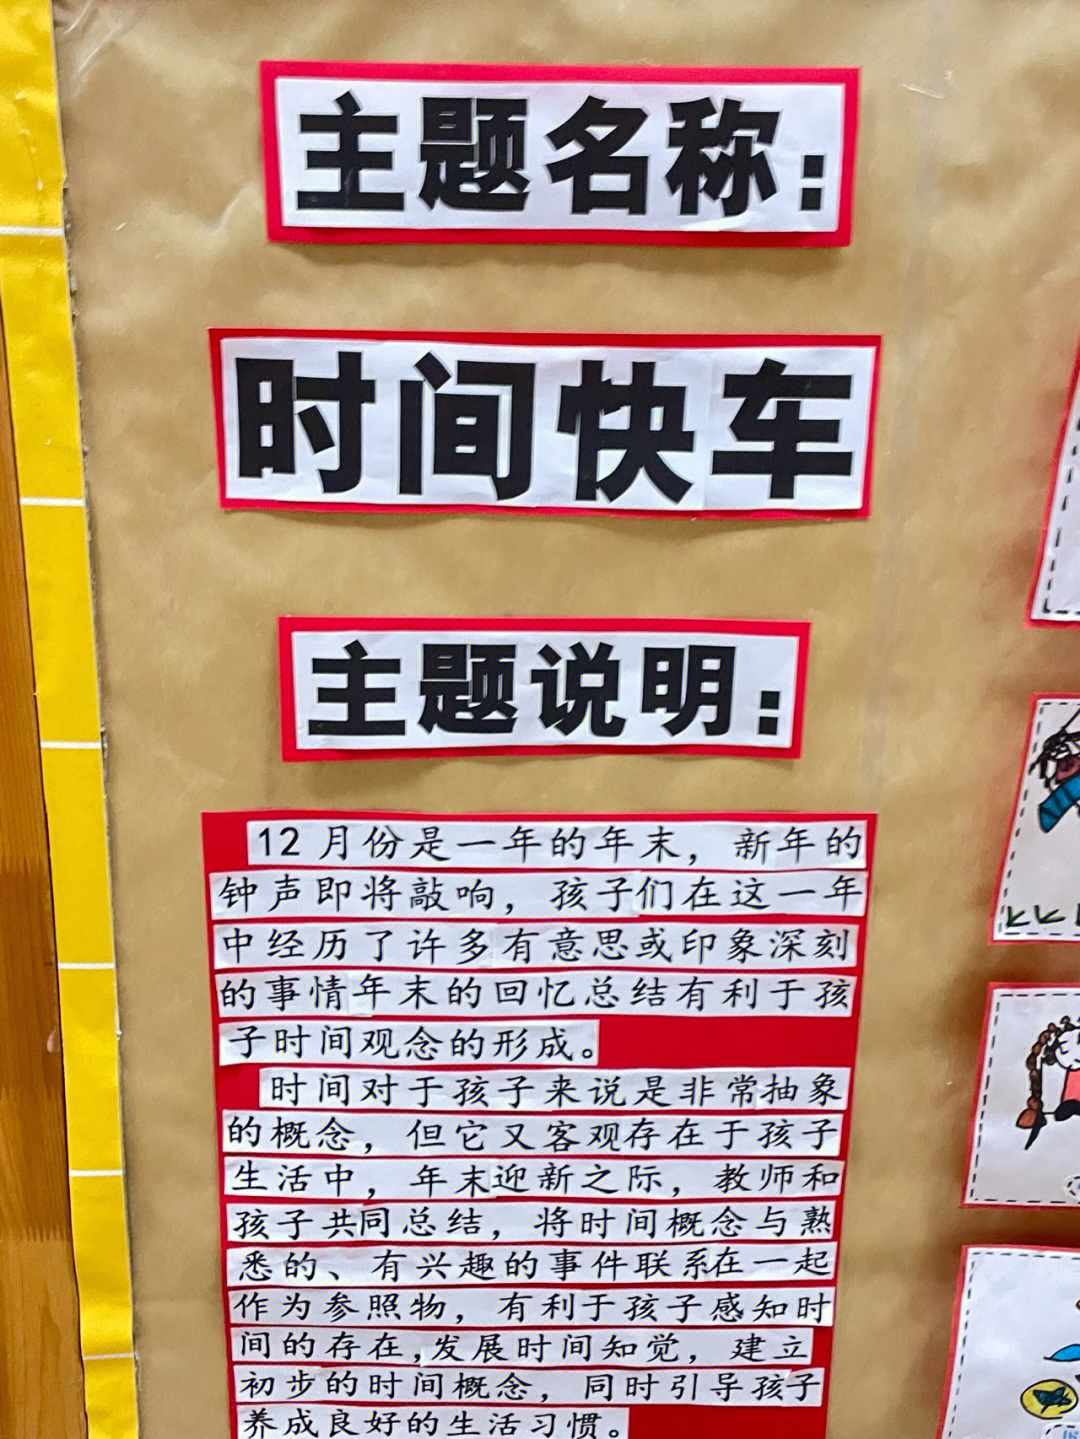 主题名称：
时间快车
主题说明：
12月份是一年的年末，新年的
钟声即将敲响，孩子们在这一年
中经历了许多有意思或印象深刻
的事情年末的回忆总结有利于孩
子时间观念的形成。
时间对于孩子来说是非常抽象
的概念，但它又客观存在于孩子
生活中，年末迎新之际，教师和
孩子共同总结，将时间概念与熟
悉的、有兴趣的事件联系在一起
作为参照物，有利于孩子感知时
间的存在,发展时间知觉，建立
初步的时间概念，同时引导孩子
养成良好的生活习惯。